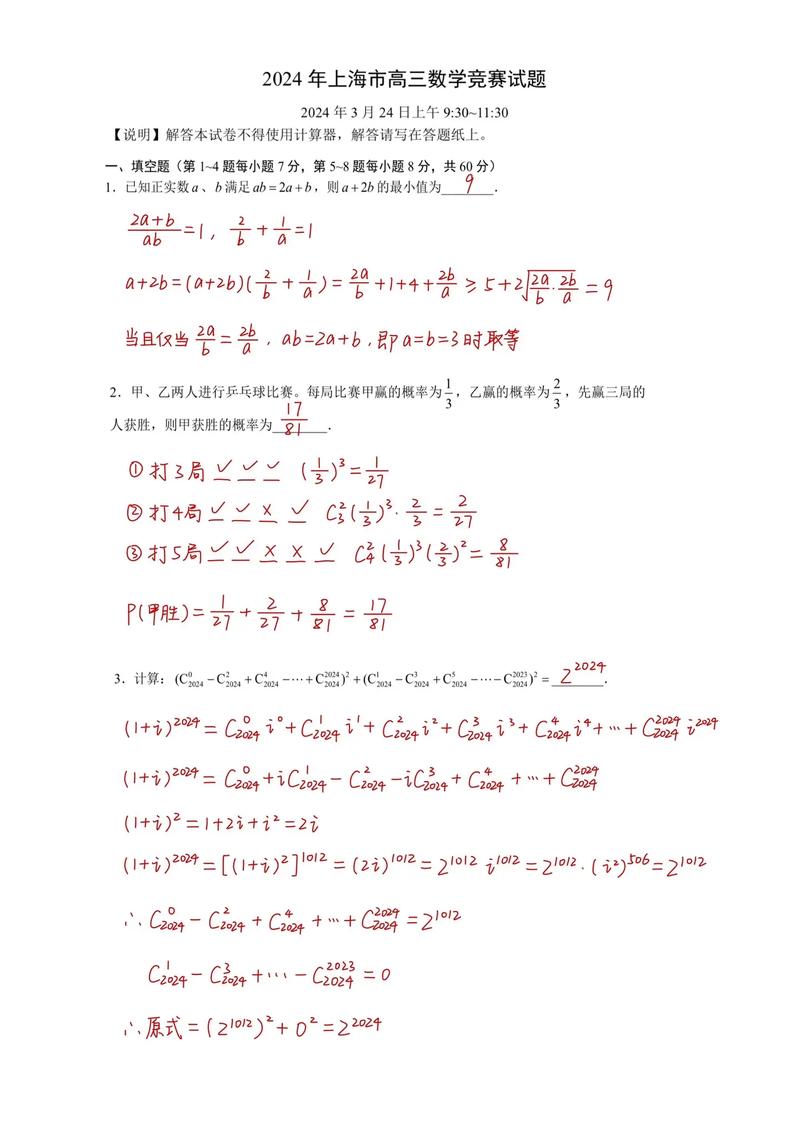 2024 年上海市高三数学竞赛试题
2024 年 3 月 24 日上午 9:30~11:30
【说明】解答本试卷不得使用计算器，解答请写在答题纸上。
一、填空题（第 1~4 题每小题 7 分，第 5~8 题每小题 8 分，共 60 分）
1．已知正实数 a、b 满足 ab = 2a + b，则 a + 2b 的最小值为 9 ．
(2a+b)/(ab) = 1, 2/b + 1/a = 1
a+2b = (a+2b)(2/b + 1/a) = 2a/b + 1 + 4 + 2b/a ≥ 5 + 2√(2a/b · 2b/a) = 9
当且仅当 2a/b = 2b/a , ab=2a+b , 即 a=b=3 时取等
2．甲、乙两人进行乒乓球比赛。每局比赛甲赢的概率为 1/3，乙赢的概率为 2/3，先赢三局的
人获胜，则甲获胜的概率为 17/81 ．
① 打3局 ✓ ✓ ✓ (1/3)³ = 1/27
② 打4局 ✓ ✓ × ✓ C₃² (1/3)³ · 2/3 = 2/27
③ 打5局 ✓ ✓ × × ✓ C₄² (1/3)³ (2/3)² = 8/81
P(甲胜) = 1/27 + 2/27 + 8/81 = 17/81
3．计算：(C₂₀₂₄⁰ − C₂₀₂₄² + C₂₀₂₄⁴ − ⋯ + C₂₀₂₄²⁰²⁴)² + (C₂₀₂₄¹ − C₂₀₂₄³ + C₂₀₂₄⁵ − ⋯ − C₂₀₂₄²⁰²³)² = 2²⁰²⁴ ．
(1+i)²⁰²⁴ = C₂₀₂₄⁰ i⁰ + C₂₀₂₄¹ i¹ + C₂₀₂₄² i² + C₂₀₂₄³ i³ + C₂₀₂₄⁴ i⁴ + ⋯ + C₂₀₂₄²⁰²⁴ i²⁰²⁴
(1+i)²⁰²⁴ = C₂₀₂₄⁰ + iC₂₀₂₄¹ − C₂₀₂₄² − iC₂₀₂₄³ + C₂₀₂₄⁴ + ⋯ + C₂₀₂₄²⁰²⁴
(1+i)² = 1+2i+i² = 2i
(1+i)²⁰²⁴ = [(1+i)²]¹⁰¹² = (2i)¹⁰¹² = 2¹⁰¹² i¹⁰¹² = 2¹⁰¹² · (i²)⁵⁰⁶ = 2¹⁰¹²
∴ C₂₀₂₄⁰ − C₂₀₂₄² + C₂₀₂₄⁴ + ⋯ + C₂₀₂₄²⁰²⁴ = 2¹⁰¹²
C₂₀₂₄¹ − C₂₀₂₄³ + ⋯ − C₂₀₂₄²⁰²³ = 0
∴ 原式 = (2¹⁰¹²)² + 0² = 2²⁰²⁴